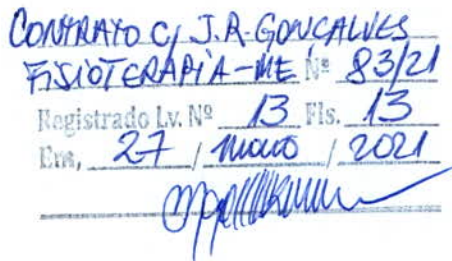 CONTRATO C/ J.R. GONCALVES
FISIOTERAPIA-ME Nº 83/21
Registrado Lv. Nº 13 Fls. 13
Em, 27 / maio / 2021